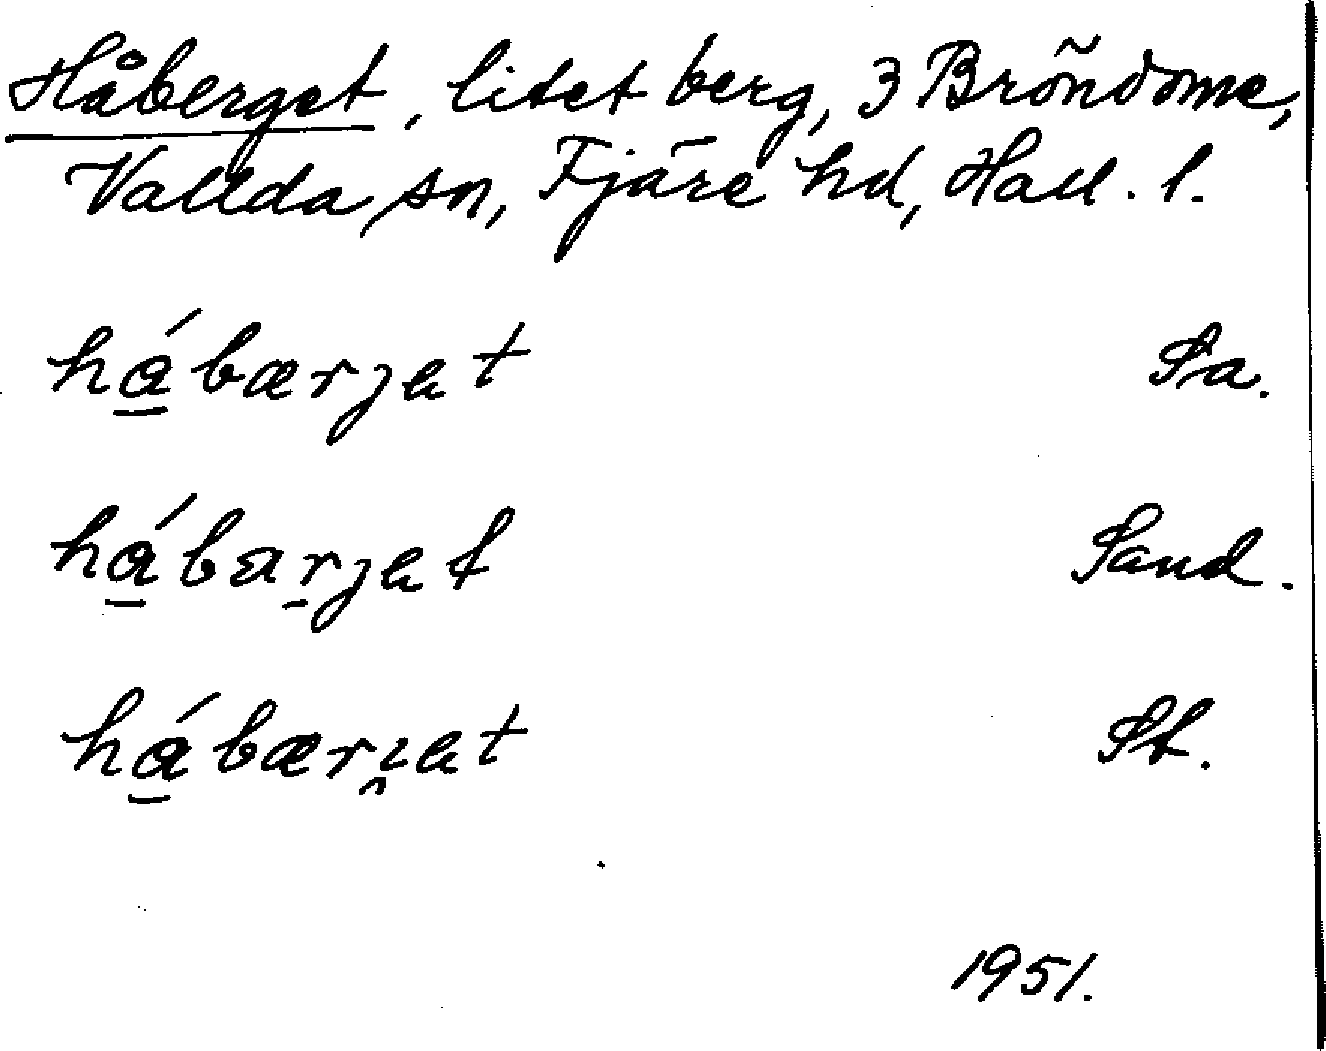 Håberget, litet berg, 3 Bröndome,
Vallda sn, Fjäre hd, Hall. l.
hά̲bærjat Sa.
hά̲bar̠jat Sand.
hά̲bærı̯at St.
1951.